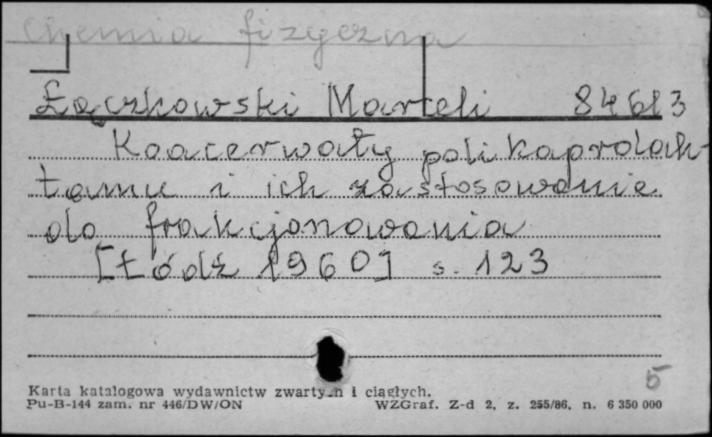 chemia fizyczna
Łączkowski Marceli 84613
Koacerwaty polikaprolak-
tamu i ich zastosowanie
do frakcjonowania
[Łódź 1960] s. 123
5
Karta katalogowa wydawnictw zwartych i ciągłych.
Pu-B-144 zam. nr 446/DW/ON WZGraf. Z-d 2, z. 255/86, n. 6 350 000